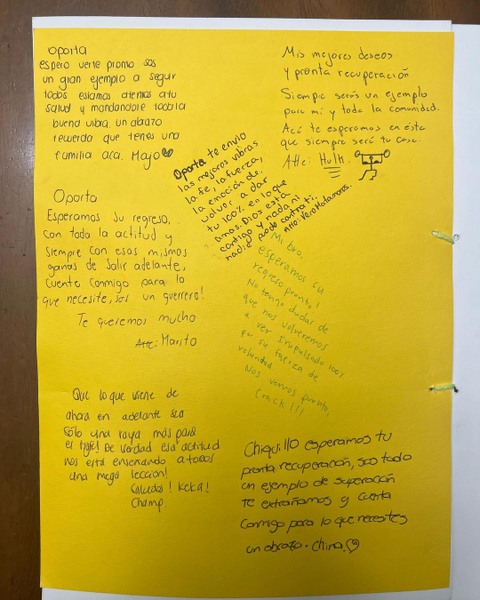 Oporta
espero verte pronto sos
un gran ejemplo a seguir
todos estamos atentos a tu
salud y mandandote toda la
buena vibra. un abrazo
recuerda que tenes una
familia aca. Majo
Mis mejores deseos
y pronta recuperación
Siempre serás un ejemplo
para mi y toda la comunidad.
Acá te esperamos en esta
que siempre será tu casa.
Atte: Hulk.
Oporta te envio
las mejores vibras
la fe, la fuerza,
la emoción de
volver a dar
tu 100% en lo que
amas. Dios está
contigo y nada ni
nadie podrá contra ti.
Atte: Vero Matamoros.
Oporta
Esperamos su regreso,
con toda la actitud y
siempre con esas mismas
ganas de salir adelante,
cuente conmigo para lo
que necesite, sos un guerrero!
Te queremos mucho
Att: Marito
Mi bro,
esperamos su
regreso pronto!
No tengo dudas de
que nos volveremos
a ver impulsado 100%
por su fuerza de
voluntad.
Nos vemos pronto,
crack!!!
Que lo que viene de
ahora en adelante sea
sólo una raya más para
el tigre! De verdad esa actitud
nos está enseñando a todos
una mega lección!
Saludos! Keka!
Champ.
Chiquillo esperamos tu
pronta recuperación, sos todo
un ejemplo de superación
Te extrañamos y cuenta
conmigo para lo que necesites
un abrazo. China.